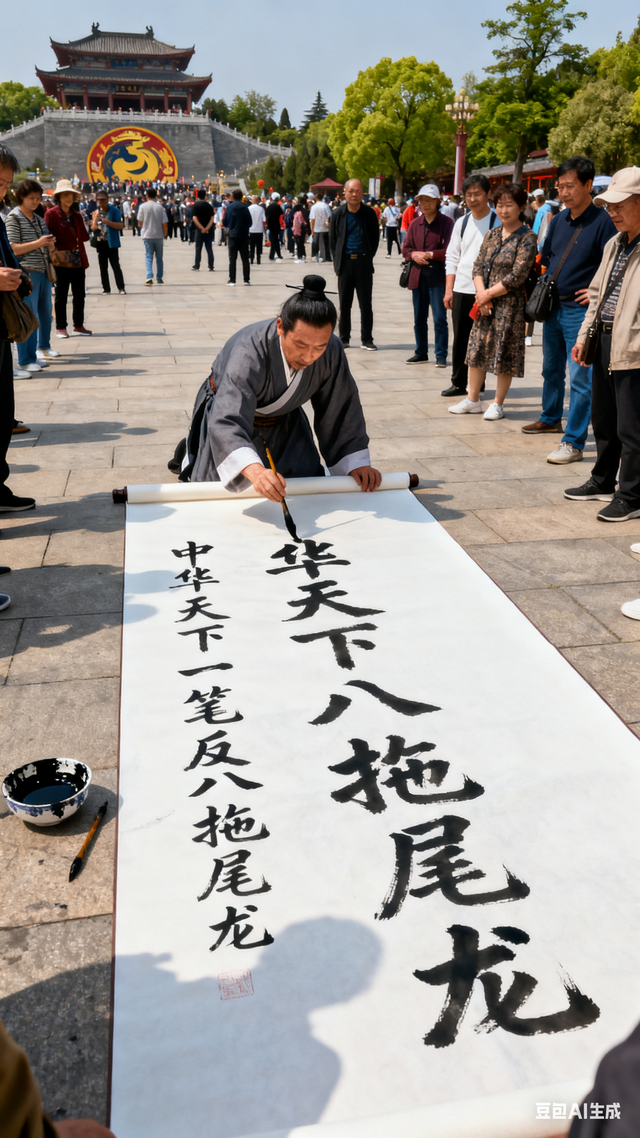 华天下八拖尾龙
中华天下一笔反八拖尾龙
豆包AI生成